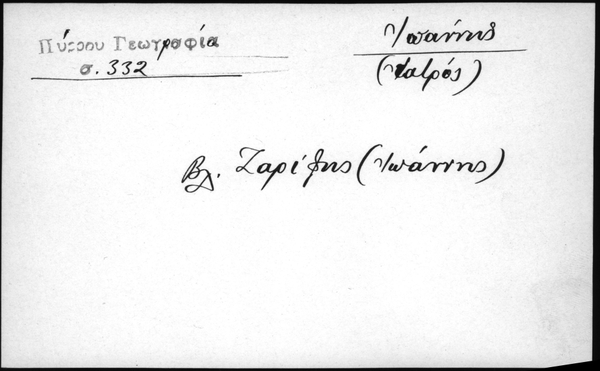 Πύρρου Γεωγραφία
σ. 332
Ἰωάννης
(Ἰατρός)
Βλ. Ζαρίφης (Ἰωάννης)